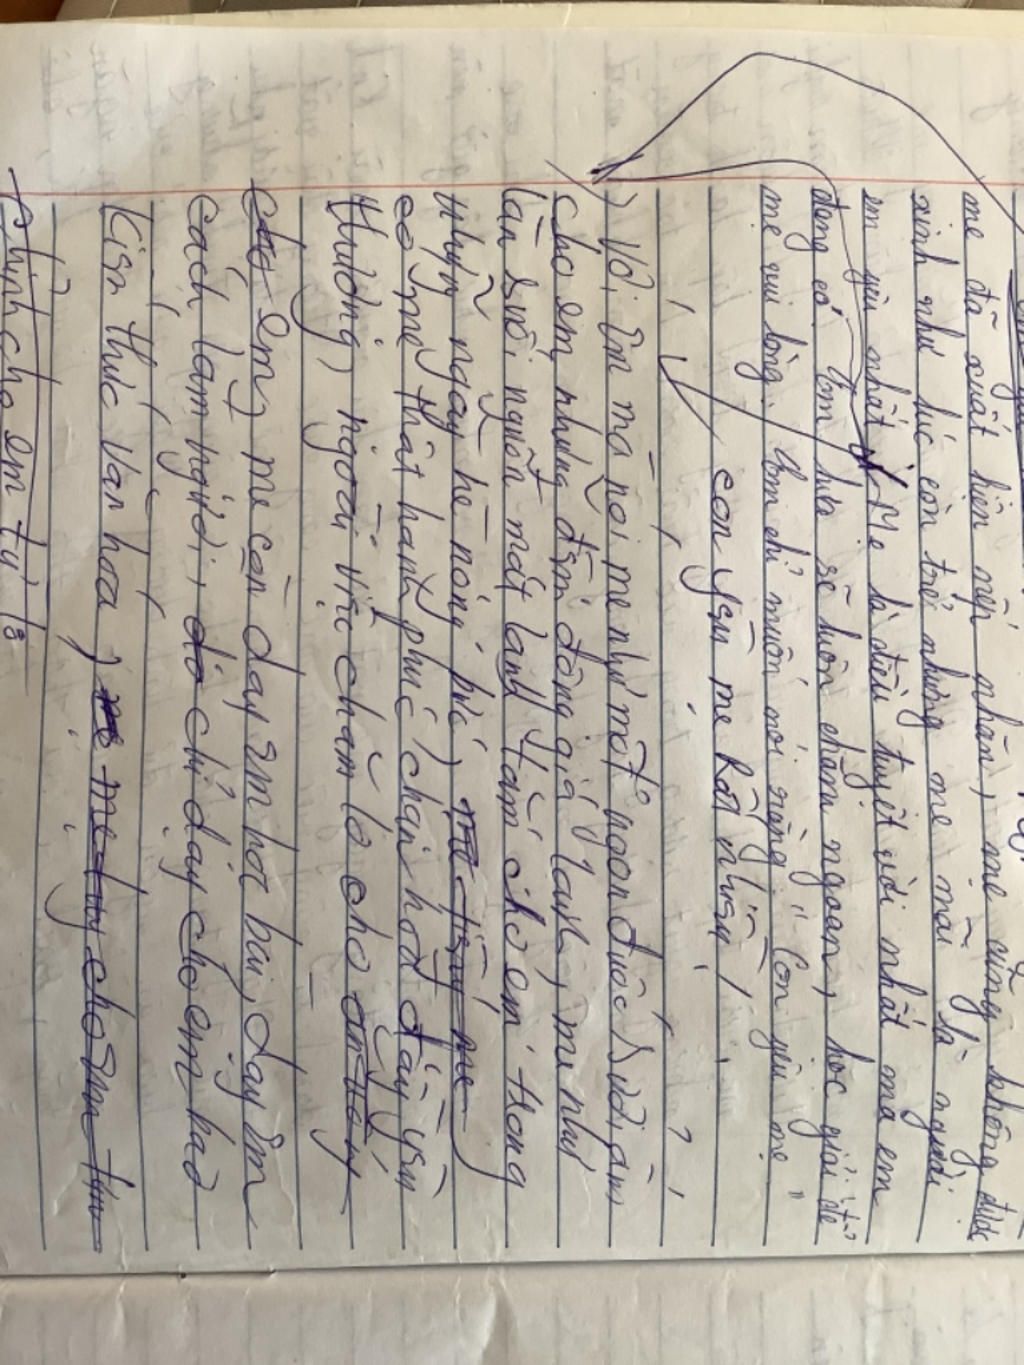 mẹ đã xuất hiện nếp nhăn, mẹ cũng không được
xinh như lúc còn trẻ nhưng mẹ mãi là người
em yêu nhất. Mẹ là điều tuyệt vời nhất mà em
đang có. Em hứa sẽ luôn chăm ngoan, học giỏi để
mẹ vui lòng. Em chỉ muốn nói rằng "Con yêu mẹ"
con yêu mẹ rất nhiều!
) Với em mà nói mẹ như một ngọn đuốc sưởi ấm
cho em những đêm đông giá lạnh, mẹ như
làn suối nguồn mát lành tắm cho em trong
những ngày hè nóng bức, mẹ
có mẹ thật hạnh phúc (chan hoà đầy yêu
thương) ngoài việc chăm lo cho
em, mẹ còn dạy em hát bài, dạy em
cách làm người, chỉ dạy cho em bao
kiến thức văn hoá, mẹ cho em
chính cho em từ